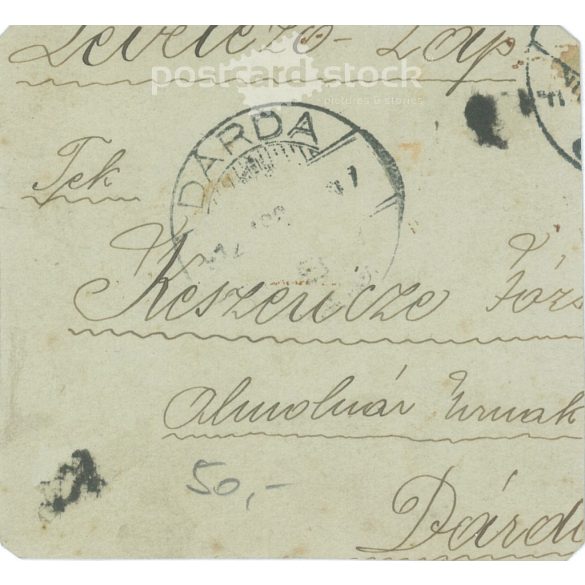 Levelező-Lap
postcard stock
pictures & stories
DÁRDA
Tek
Keszericze Józs
Almolnár Urnak
Dárd
50,-